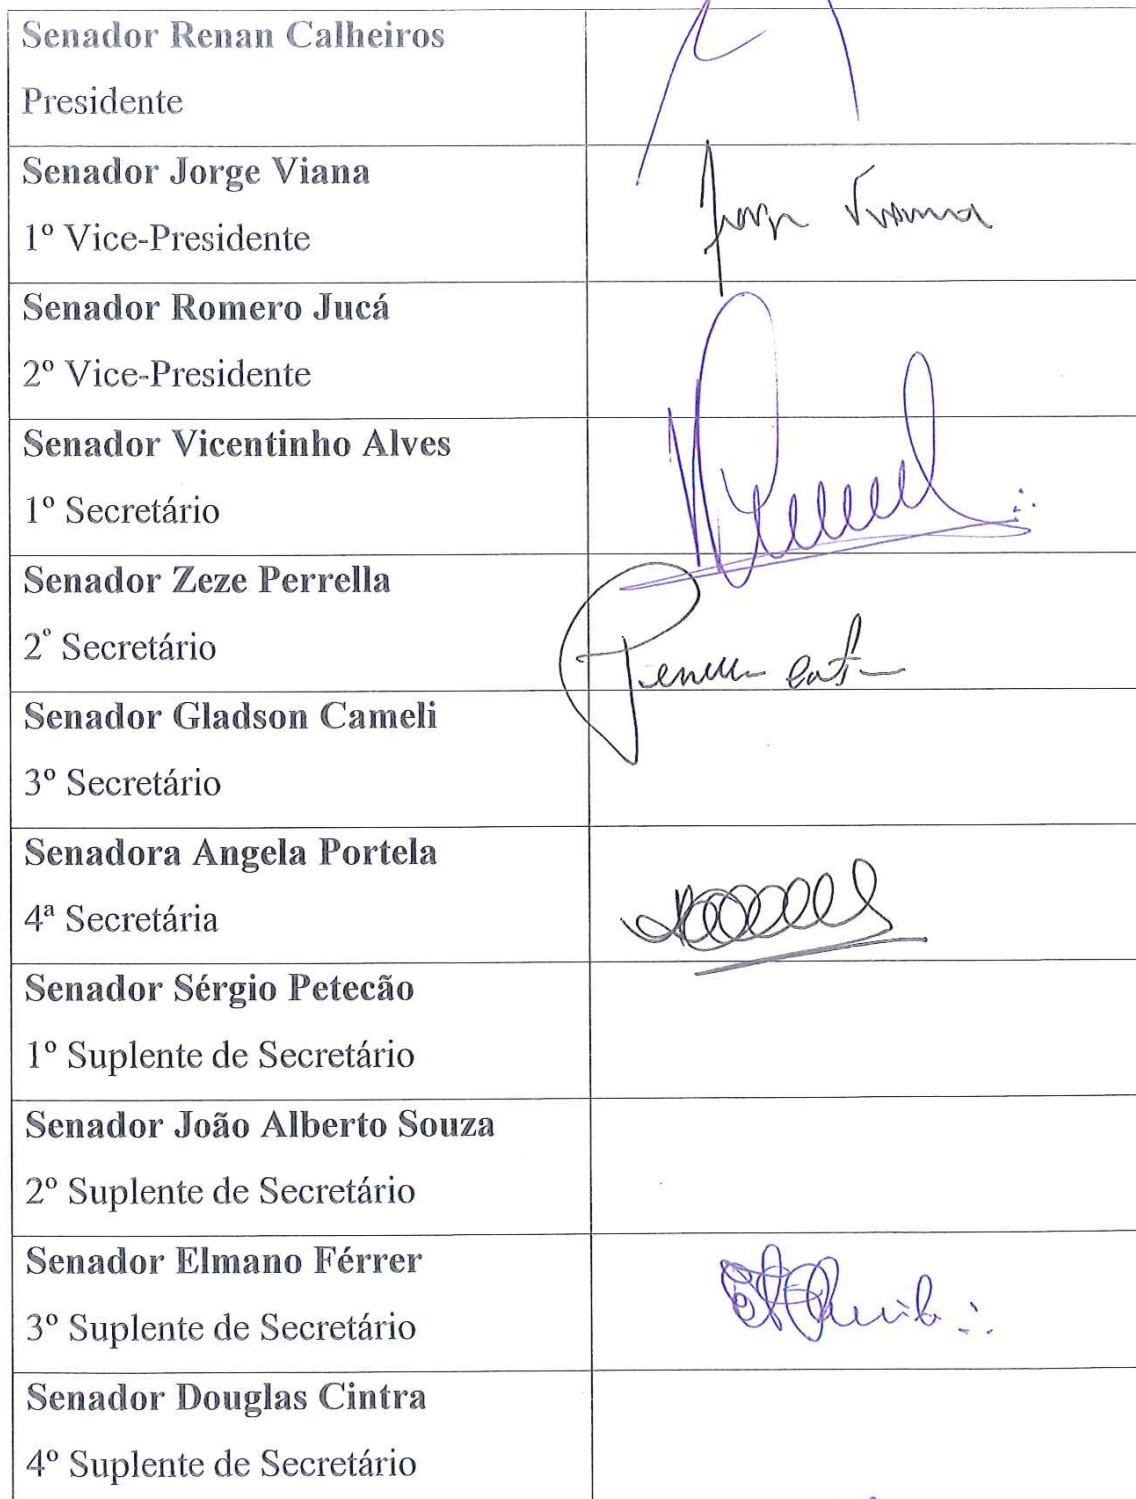 Senador Renan Calheiros
Presidente
Senador Jorge Viana
Jorge Viana
1º Vice-Presidente
Senador Romero Jucá
2º Vice-Presidente
Senador Vicentinho Alves
1º Secretário
Senador Zeze Perrella
2º Secretário
Senador Gladson Cameli
3º Secretário
Senadora Angela Portela
4ª Secretária
Senador Sérgio Petecão
1º Suplente de Secretário
Senador João Alberto Souza
2º Suplente de Secretário
Senador Elmano Férrer
3º Suplente de Secretário
Senador Douglas Cintra
4º Suplente de Secretário